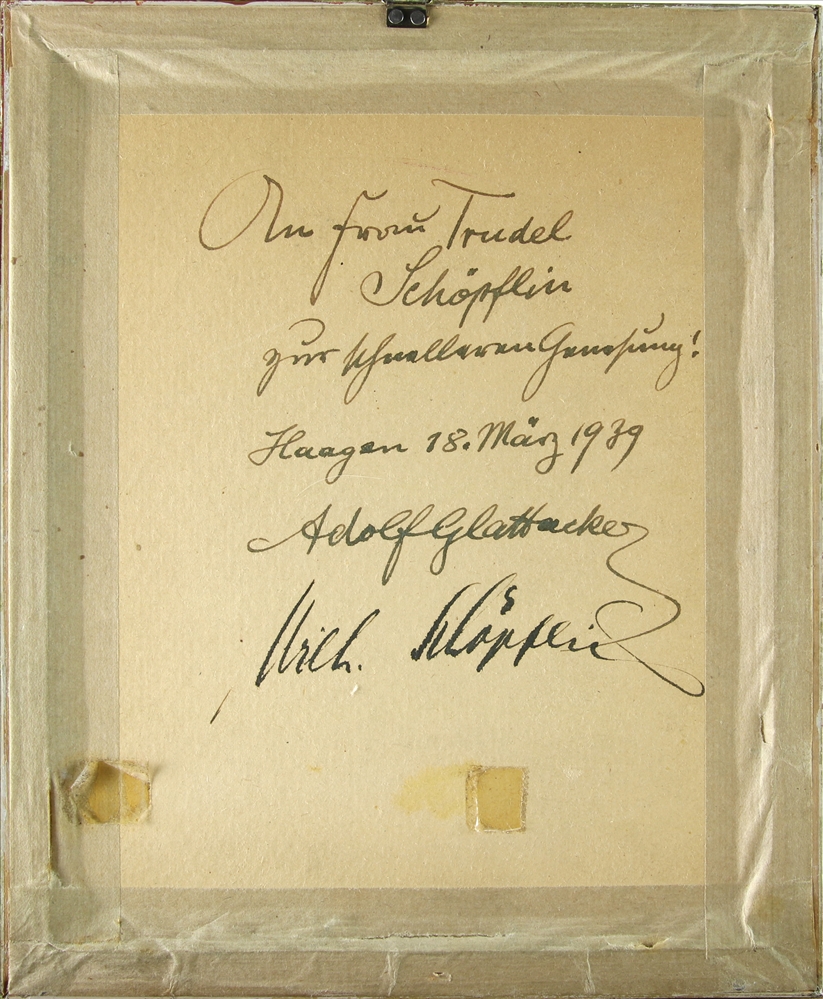 An Frau Trudel
Schöpflin
zur schnelleren Genesung!
Haagen 18. März 1939
Adolf Glattacker
Wilh. Schöpflin